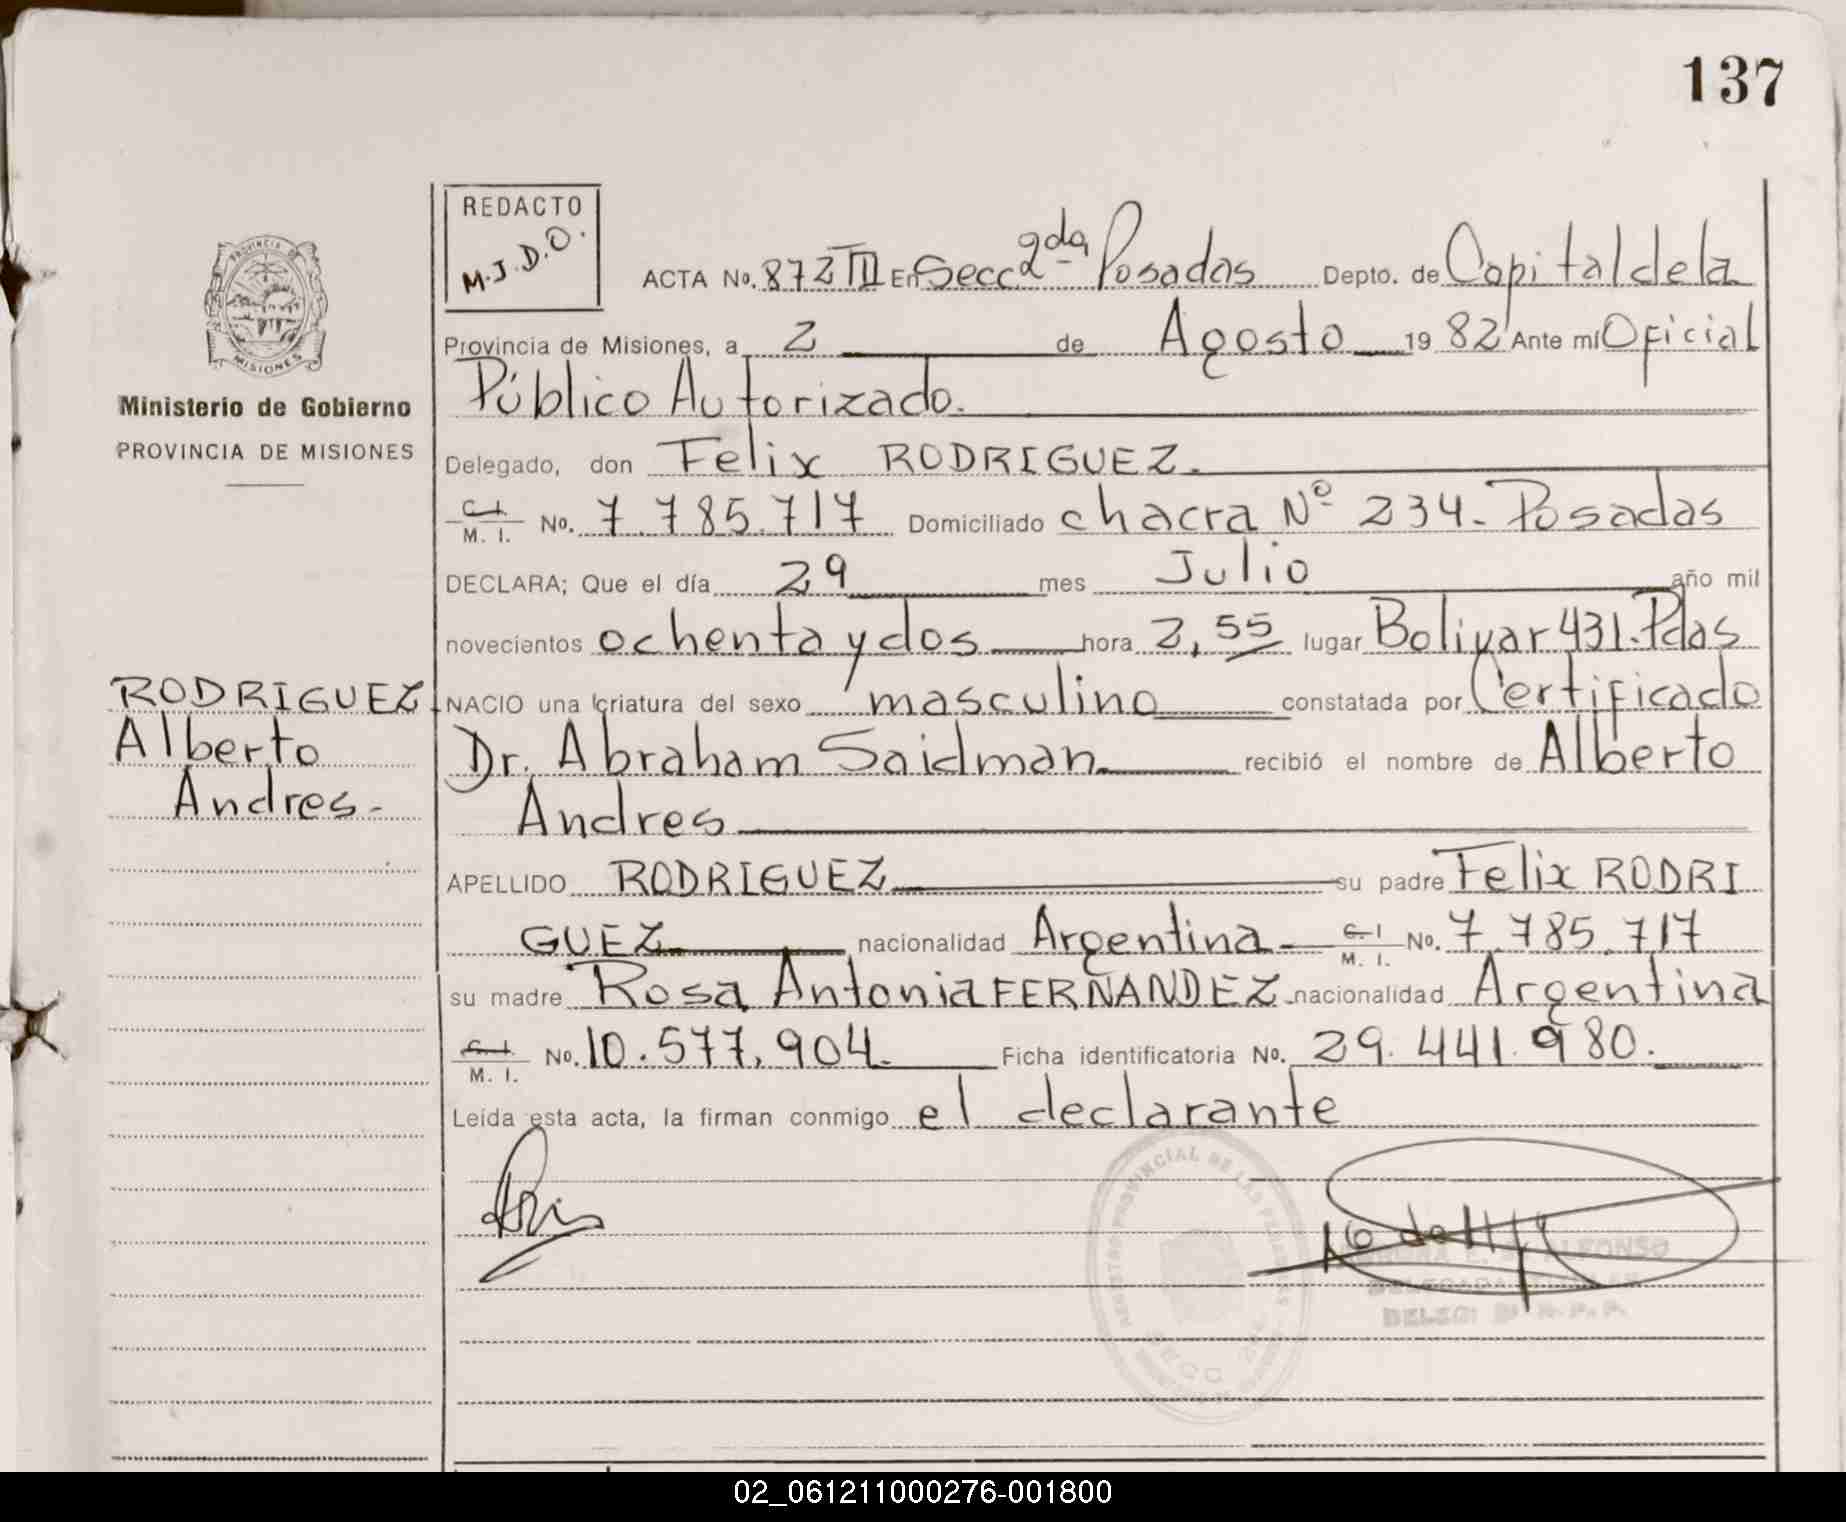 137
REDACTO
M.J.D.O.
PROVINCIA DE
MISIONES
Ministerio de Gobierno
PROVINCIA DE MISIONES
ACTA No. 872 TII En Secc 2da Posadas Depto. de Capital de la
Provincia de Misiones, a 2 de Agosto 1982 Ante mí Oficial
Público Autorizado.
Delegado, don Felix RODRIGUEZ.
C. I.
M. I. No. 7.785.717 Domiciliado chacra Nº 234. Posadas
DECLARA; Que el día 29 mes Julio año mil
novecientos ochenta y dos hora 2,55 lugar Bolivar 431. Pdas
RODRIGUEZ
Alberto
Andres.
NACIO una criatura del sexo masculino constatada por Certificado
Dr. Abraham Saidman recibió el nombre de Alberto
Andres
APELLIDO RODRIGUEZ su padre Felix RODRI
GUEZ nacionalidad Argentina C. I.
M. I. No. 7.785.717
su madre Rosa Antonia FERNANDEZ nacionalidad Argentina
C. I.
M. I. No. 10.577.904. Ficha identificatoria No. 29.441.980.
Leída esta acta, la firman conmigo el declarante
ALFONSO
DELEGADA
02_061211000276-001800